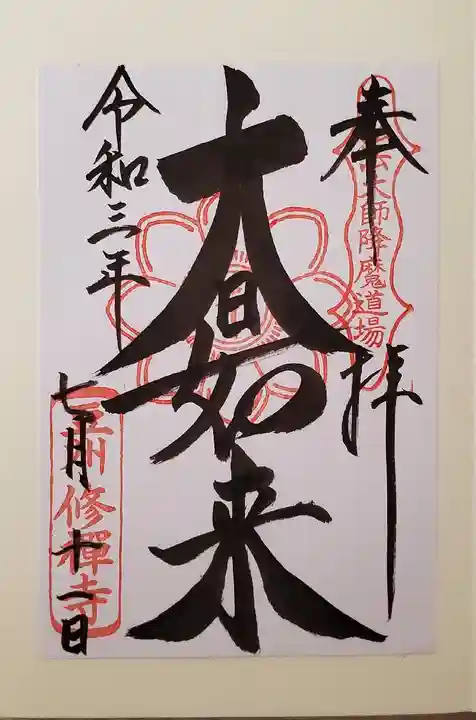 奉拝
弘法大師降魔道場
大日如来
令和三年
七月十一日
豆州修禅寺